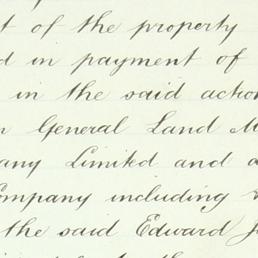 t of the property
d in payment of
in the said action
n General Land M
any Limited and a
Company including
the said Edward J